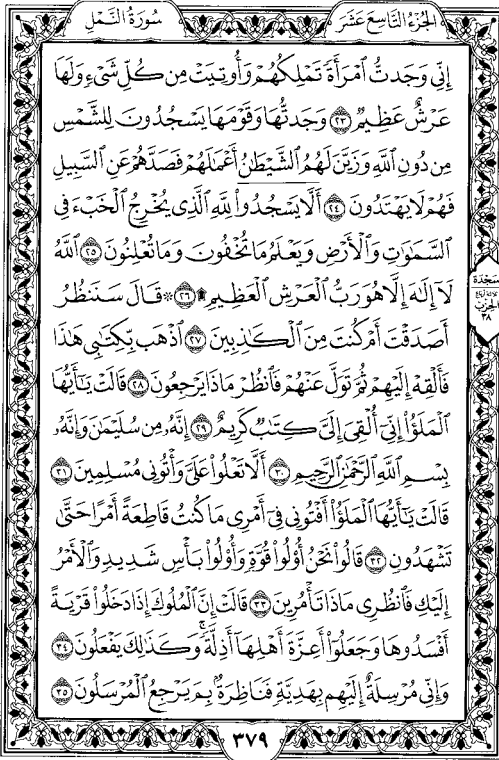 الجزء التاسع عشر
سورة النمل
إِنِّي وَجَدتُّ ٱمْرَأَةً تَمْلِكُهُمْ وَأُوتِيَتْ مِن كُلِّ شَىْءٍ وَلَهَا
عَرْشٌ عَظِيمٌ ٢٣ وَجَدتُّهَا وَقَوْمَهَا يَسْجُدُونَ لِلشَّمْسِ
مِن دُونِ ٱللَّهِ وَزَيَّنَ لَهُمُ ٱلشَّيْطَٰنُ أَعْمَٰلَهُمْ فَصَدَّهُمْ عَنِ ٱلسَّبِيلِ
فَهُمْ لَا يَهْتَدُونَ ٢٤ أَلَّا يَسْجُدُوا۟ لِلَّهِ ٱلَّذِى يُخْرِجُ ٱلْخَبْءَ فِى
ٱلسَّمَٰوَٰتِ وَٱلْأَرْضِ وَيَعْلَمُ مَا تُخْفُونَ وَمَا تُعْلِنُونَ ٢٥ ٱللَّهُ
لَآ إِلَٰهَ إِلَّا هُوَ رَبُّ ٱلْعَرْشِ ٱلْعَظِيمِ ۩ ٢٦ ۞ قَالَ سَنَنظُرُ
أَصَدَقْتَ أَمْ كُنتَ مِنَ ٱلْكَٰذِبِينَ ٢٧ ٱذْهَب بِّكِتَٰبِى هَٰذَا
فَأَلْقِهْ إِلَيْهِمْ ثُمَّ تَوَلَّ عَنْهُمْ فَٱنظُرْ مَاذَا يَرْجِعُونَ ٢٨ قَالَتْ يَٰٓأَيُّهَا
ٱلْمَلَؤُا۟ إِنِّىٓ أُلْقِىَ إِلَىَّ كِتَٰبٌ كَرِيمٌ ٢٩ إِنَّهُۥ مِن سُلَيْمَٰنَ وَإِنَّهُۥ
بِسْمِ ٱللَّهِ ٱلرَّحْمَٰنِ ٱلرَّحِيمِ ٣٠ أَلَّا تَعْلُوا۟ عَلَىَّ وَأْتُونِى مُسْلِمِينَ ٣١
قَالَتْ يَٰٓأَيُّهَا ٱلْمَلَؤُا۟ أَفْتُونِى فِىٓ أَمْرِى مَا كُنتُ قَاطِعَةً أَمْرًا حَتَّىٰ
تَشْهَدُونِ ٣٢ قَالُوا۟ نَحْنُ أُو۟لُوا۟ قُوَّةٍ وَأُو۟لُوا۟ بَأْسٍ شَدِيدٍ وَٱلْأَمْرُ
إِلَيْكِ فَٱنظُرِى مَاذَا تَأْمُرِينَ ٣٣ قَالَتْ إِنَّ ٱلْمُلُوكَ إِذَا دَخَلُوا۟ قَرْيَةً
أَفْسَدُوهَا وَجَعَلُوٓا۟ أَعِزَّةَ أَهْلِهَآ أَذِلَّةً ۖ وَكَذَٰلِكَ يَفْعَلُونَ ٣٤
وَإِنِّى مُرْسِلَةٌ إِلَيْهِم بِهَدِيَّةٍ فَنَاظِرَةٌۢ بِمَ يَرْجِعُ ٱلْمُرْسَلُونَ ٣٥
سجدة
الحزب
٣٨
٣٧٩